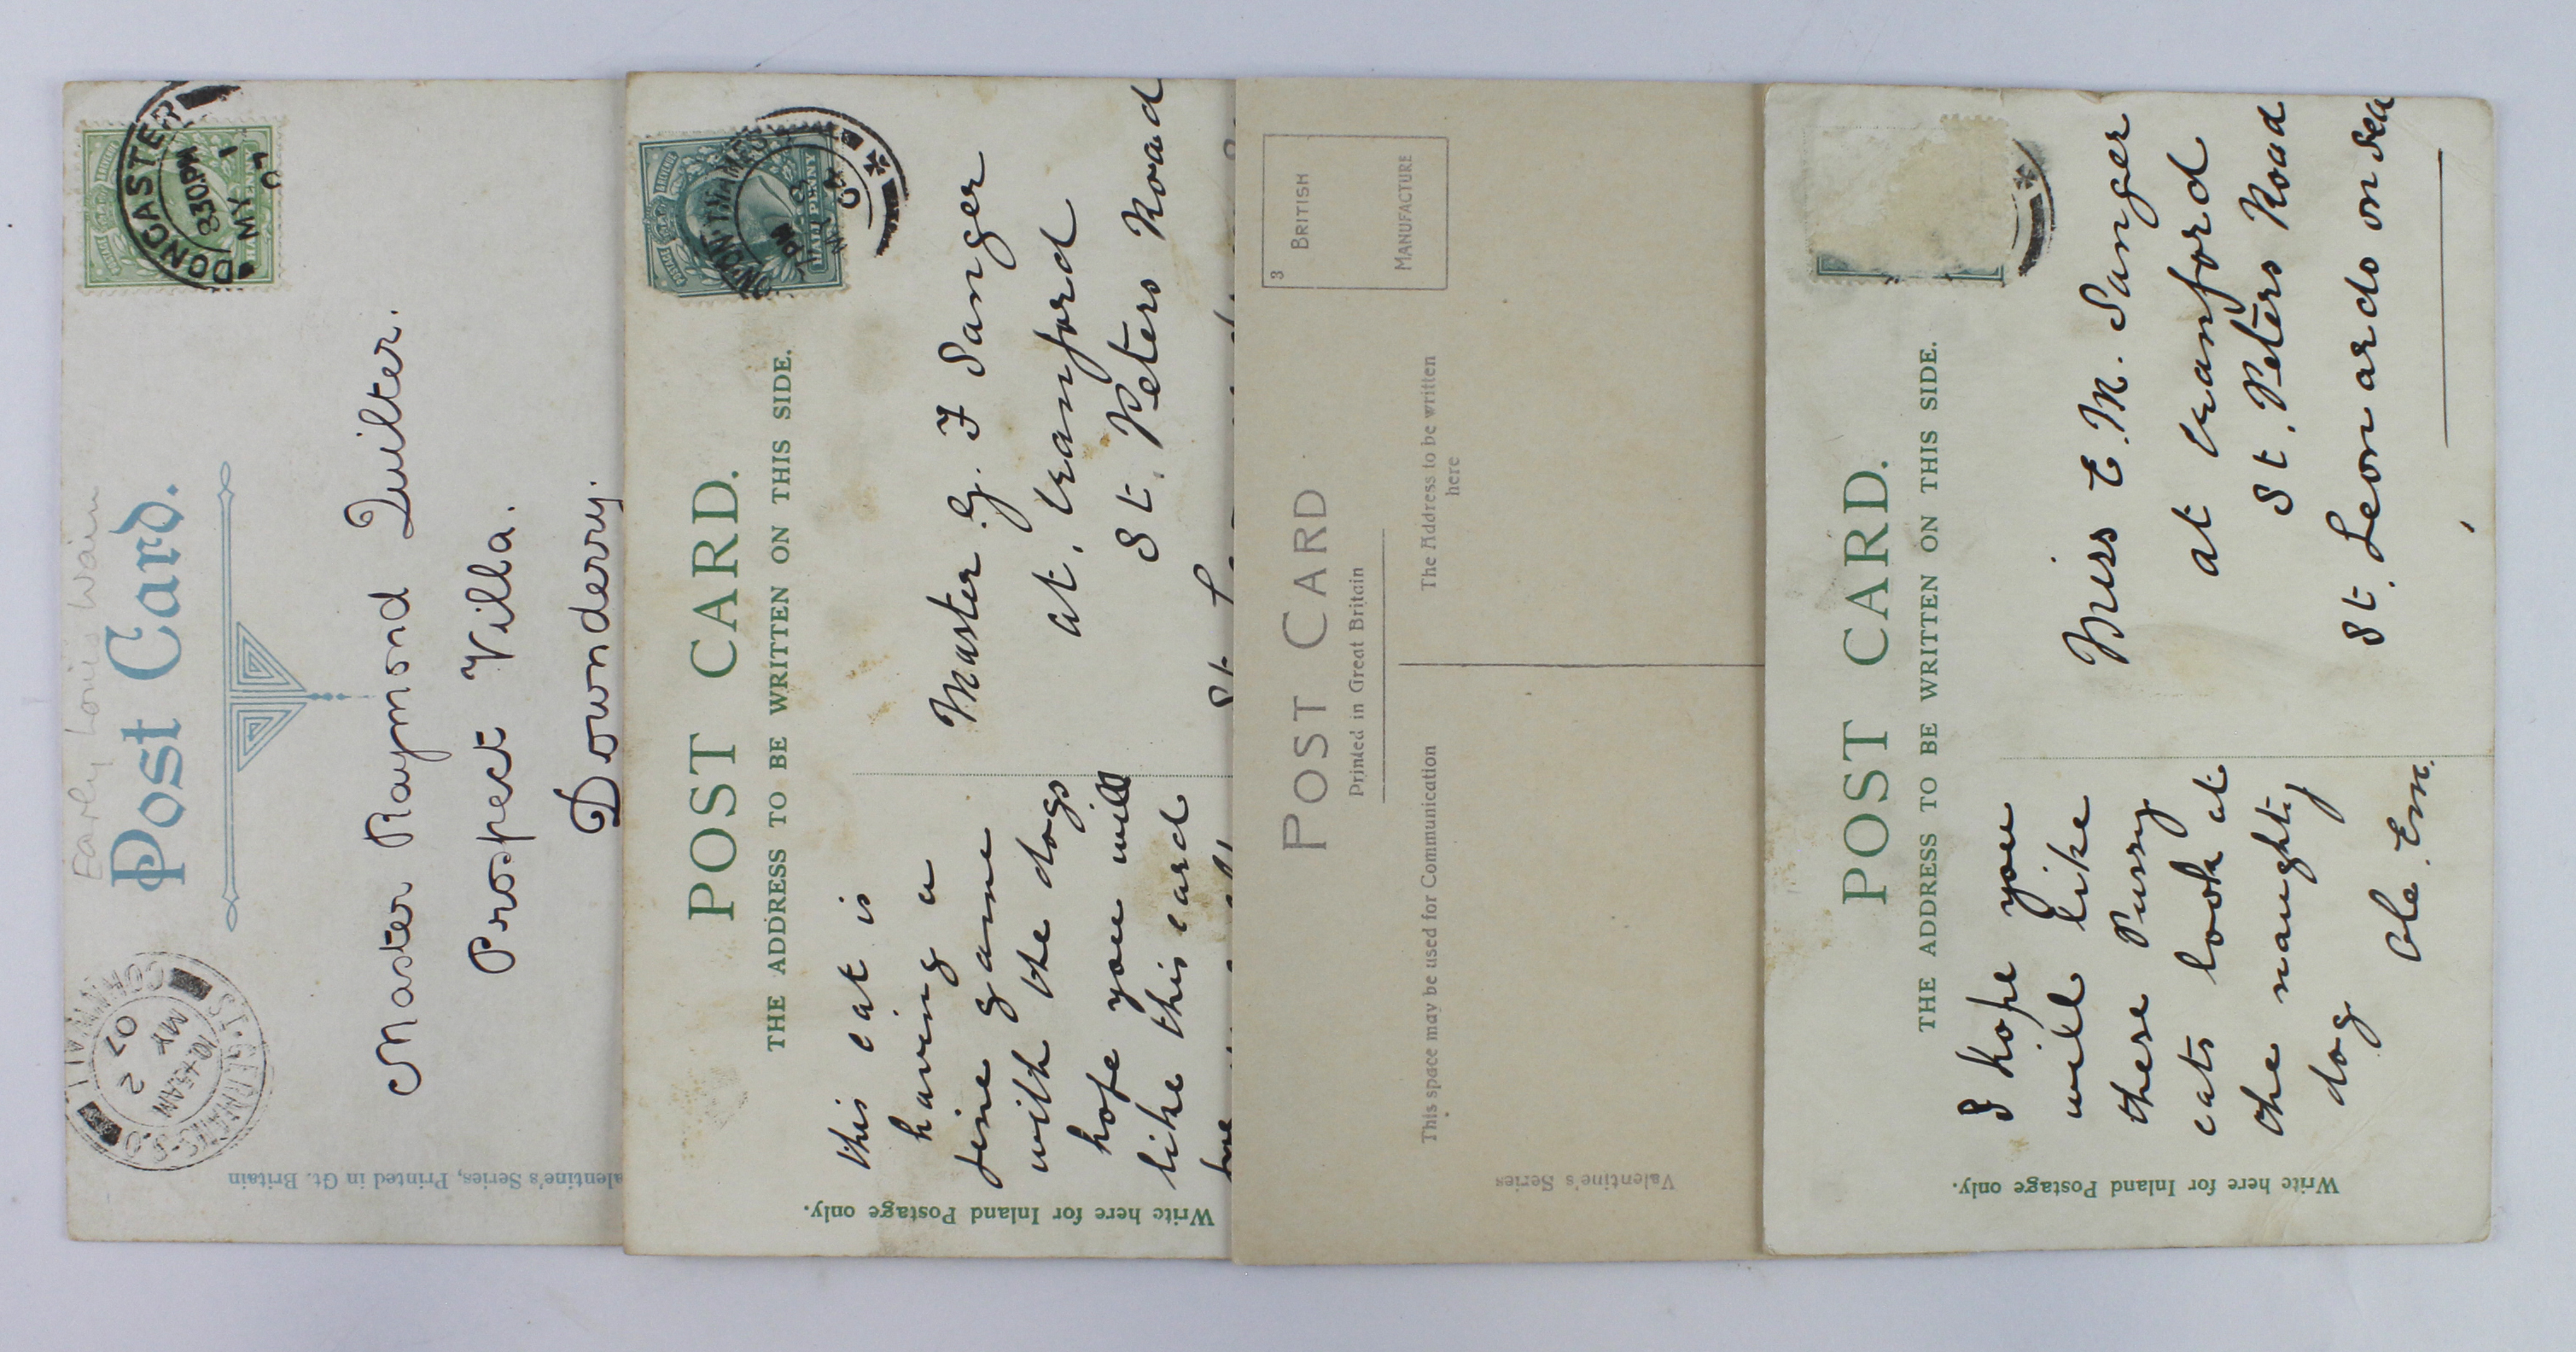 Early Louis Wain
Post Card.
DONCASTER
8.30.PM
MY 1
07
CORNWALL
10.45AM
MY 2
07
Master Raymond Quilter.
Prospect Villa.
Downderry.
alentine's Series, Printed in Gt. Britain
POST CARD.
THE ADDRESS TO BE WRITTEN ON THIS SIDE.
POSTAGE
REVENUE
HALF PENNY
this cat is
having a
fine game
with the dogs
hope you will
like this card
Master G. F Sanger
at.
St. Peters Road
St.
Write here for Inland Postage only.
3
BRITISH
MANUFACTURE
POST CARD
Printed in Great Britain
This space may be used for Communication
The Address to be written
here
Valentine's Series
POST CARD.
THE ADDRESS TO BE WRITTEN ON THIS SIDE.
I hope you
will like
these Pussy
cats look at
the naughty
dog
Ole. Em.
Miss E. M. Sanger
at
St. Peters Road
St. Leonards on Sea
Write here for Inland Postage only.